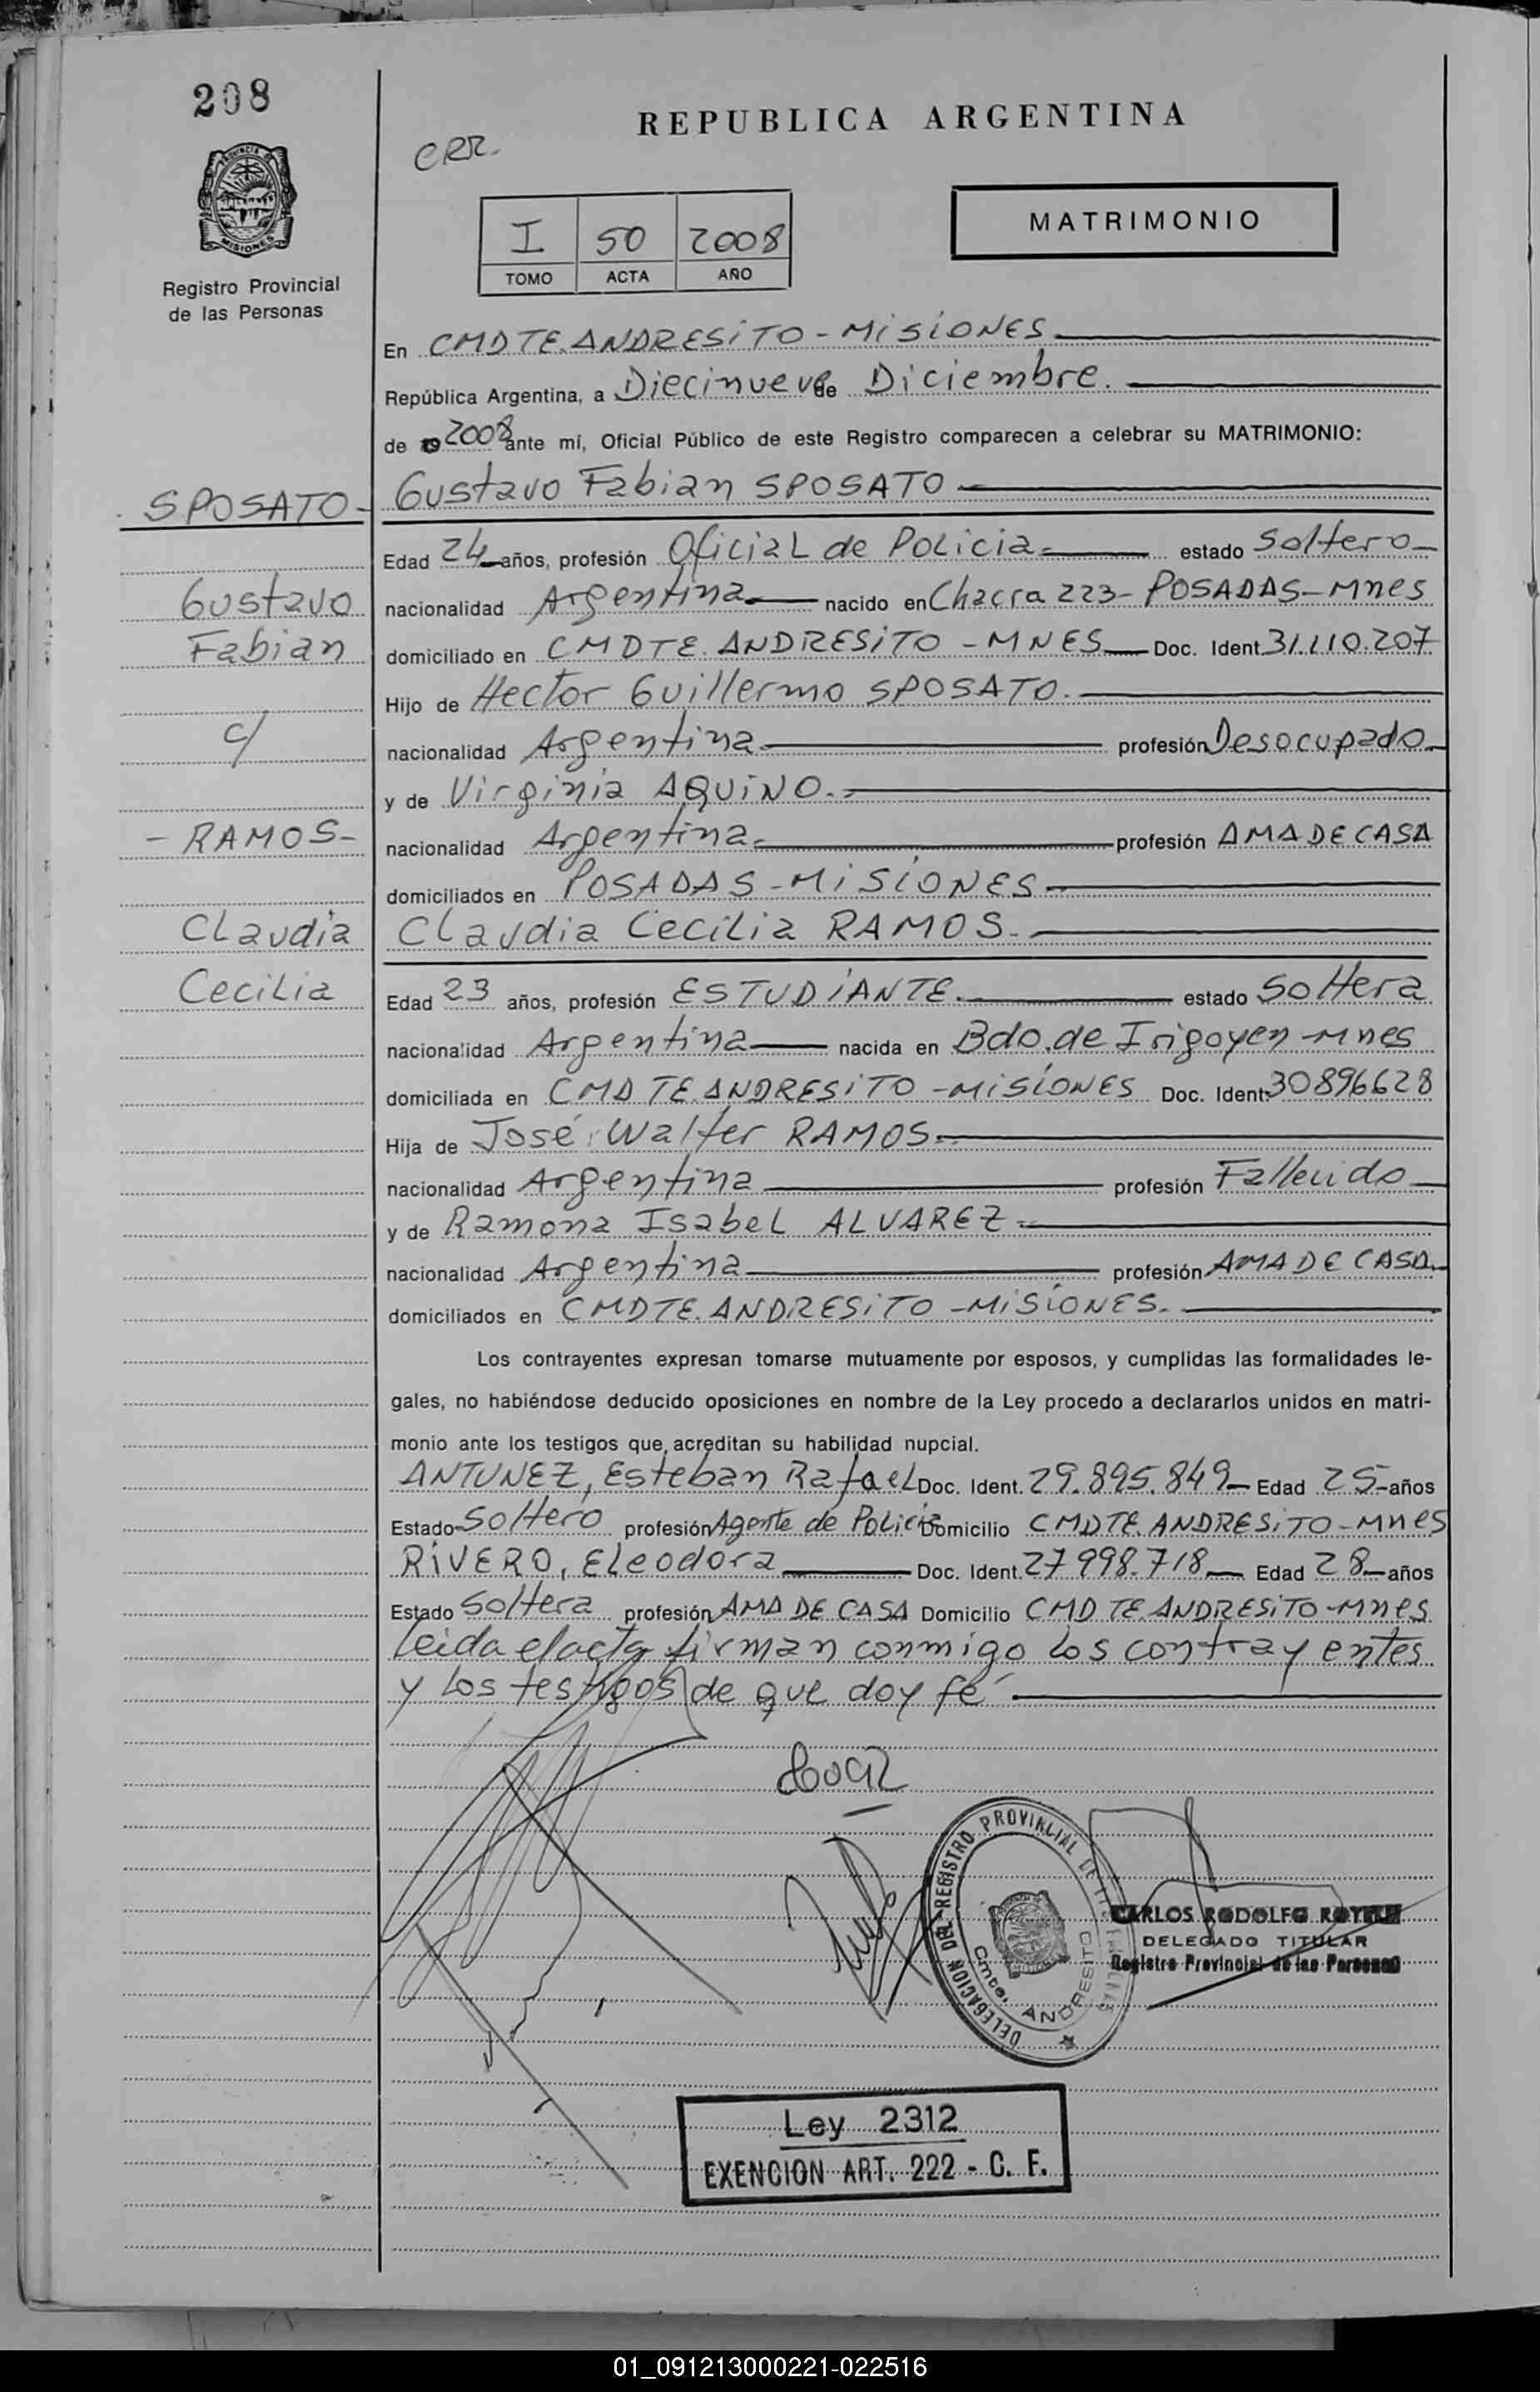 208
REPUBLICA ARGENTINA
CRR.
PROVINCIA DE
MISIONES
Registro Provincial
de las Personas
I 50 2008
TOMO ACTA AÑO
MATRIMONIO
En CMDTE. ANDRESiTO - MiSiONES
República Argentina, a Diecinueve de Diciembre.
de 2008 ante mí, Oficial Público de este Registro comparecen a celebrar su MATRIMONIO:
SPOSATO - Gustavo Fabian SPOSATO
Edad 24 años, profesión Oficial de Policia estado Soltero
Gustavo nacionalidad Argentina nacido en Chacra 223 - POSADAS - Mnes
Fabian domiciliado en CMDTE. ANDRESiTO - MNES Doc. Ident. 31.110.207
Hijo de Hector Guillermo SPOSATO.
c/ nacionalidad Argentina profesión Desocupado
y de Virginia AQUiNO.
- RAMOS - nacionalidad Argentina profesión AMA DE CASA
domiciliados en POSADAS - MiSiONES
Claudia Claudia Cecilia RAMOS.
Cecilia Edad 23 años, profesión ESTUDiANTE. estado Soltera
nacionalidad Argentina nacida en Bdo. de Irigoyen - Mnes
domiciliada en CMDTE ANDRESiTO - MiSiONES Doc. Ident. 30896628
Hija de José Walter RAMOS
nacionalidad Argentina profesión Fallecido
y de Ramona Isabel ALVAREZ
nacionalidad Argentina profesión AMA DE CASA.
domiciliados en CMDTE. ANDRESiTO - MiSiONES.
Los contrayentes expresan tomarse mutuamente por esposos, y cumplidas las formalidades le-
gales, no habiéndose deducido oposiciones en nombre de la Ley procedo a declararlos unidos en matri-
monio ante los testigos que acreditan su habilidad nupcial.
ANTUNEZ, Esteban Rafael Doc. Ident. 29.895.849 Edad 25 años
Estado Soltero profesión Agente de Policia Domicilio CMDTE ANDRESiTO - Mnes
RiVERO, Eleodora Doc. Ident. 27998.718 Edad 28 años
Estado Soltera profesión AMA DE CASA Domicilio CMDTE ANDRESiTO - Mnes
Leida el acta firman conmigo los contrayentes
y los testigos de que doy fé
DELEGACION DEL REGISTRO PROVINCIAL DE
Cmte. ANDRESITO
CARLOS RODOLFO
DELEGADO TITULAR
Registro Provincial de las Personas
Ley 2312
EXENCION ART. 222 - C. F.
01_091213000221-022516